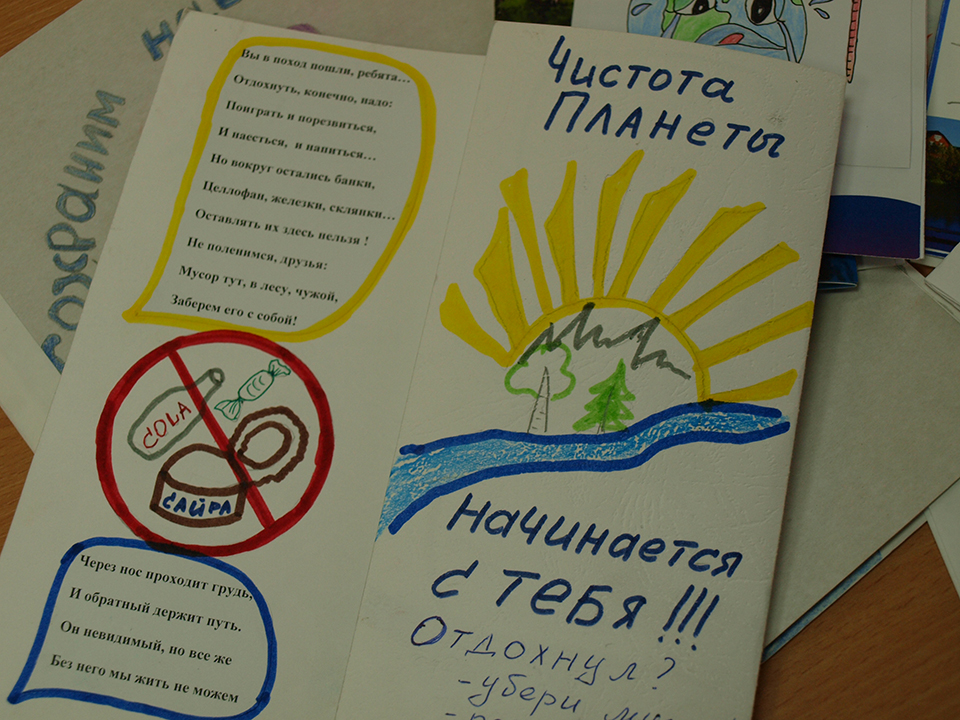 Вы в поход пошли, ребята...
Отдохнуть, конечно, надо:
Поиграть и порезвиться,
И наесться, и напиться...
Но вокруг остались банки,
Целлофан, железки, склянки...
Оставлять их здесь нельзя !
Не поленимся, друзья:
Мусор тут, в лесу, чужой,
Заберем его с собой!
COLA
САЙРА
Через нос проходит грудь,
И обратный держит путь.
Он невидимый, но все же
Без него мы жить не можем
Чистота
Планеты
Начинается
с ТЕБЯ!!!
Отдохнул?
-убери
Сохраним